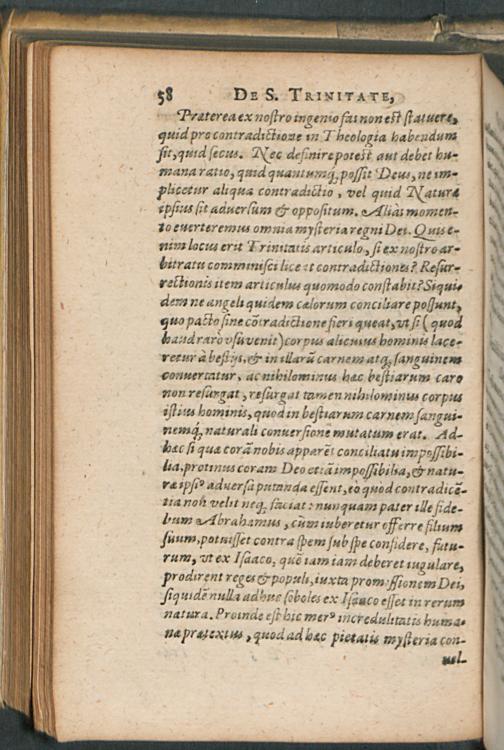 58 DE S. TRINITATE,
Præterea ex nostro ingenio fas non est statuere,
quid pro contradictione in Theologia habendum
sit, quid secus. Nec definire potest aut debet hu-
mana ratio, quid quantumq́, possit Deus, ne im-
plicetur aliqua contradictio, vel quid Naturæ
ipsius sit adversum & oppositum. Aliàs momen-
to everteremus omnia mysteria regni Dei. Quis e-
nim locus erit Trinitatis articulo, si ex nostro ar-
bitratu comminisci liceat contradictiones? Resur-
rectionis item articulus quomodo constabit? Siqui-
dem ne angeli quidem cælorum conciliare possunt,
quo pacto sine cõtradictione fieri queat, vt si (quod
haud rarò vsu venit) corpus alicuius hominis lace-
retur à bestijs, & in illarũ carnem atq́, sanguinem
convertatur, ac nihilominus hæc bestiarum caro
non resurgat, resurgat tamen nihilominus corpus
istius hominis, quod in bestiarum carnem sangui-
nemq́, naturali conversione mutatum erat. Ad-
hæc si quæ corã nobis apparẽt conciliatu impossibi-
lia, protinus coram Deo etiã impossibilia, & natu-
ræ ipsiꝰ adversa putanda essent, eò quòd contradicẽ-
tia non velit neq́, faciat: nunquam pater ille fide-
lium Abrahamus, cùm iuberetur offerre filium
suum, potuisset contra spem sub spe confidere, futu-
rum, vt ex Isaaco, quẽ iam iam deberet iugulare,
prodirent reges & populi, iuxta promissionem Dei,
siquidẽ nulla adhuc soboles ex Isaaco esset in rerum
natura. Proinde est hic merꝰ incredulitatis huma-
næ prætextus, quod ad hæc pietatis mysteria con-
vel-